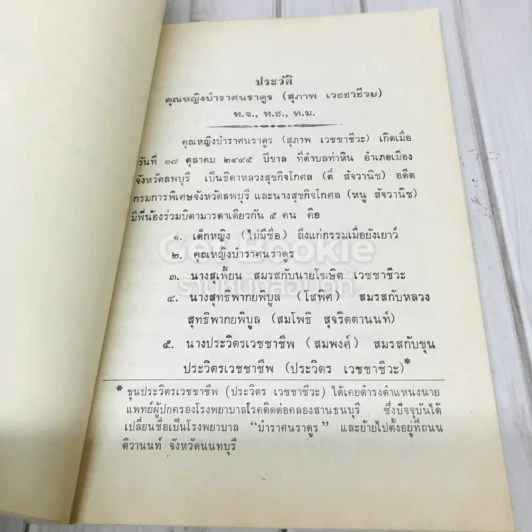 ประวัติ
คุณหญิงบำราศนราดูร (สุภาพ เวชชาชีวะ)
ท.จ., ท.ช., ท.ม.
คุณหญิงบำราศนราดูร (สุภาพ เวชชาชีวะ) เกิดเมื่อ
วันที่ ๑๗ ตุลาคม ๒๔๔๕ ปีขาล ที่ตำบลท่าหิน อำเภอเมือง
จังหวัดลพบุรี เป็นธิดาหลวงสุขกิจโกศล (ดี่ สัจวานิช) อดีต
กรมการพิเศษจังหวัดลพบุรี และนางสุขกิจโกศล (หนู สัจวานิช)
มีพี่น้องร่วมบิดามารดาเดียวกัน ๕ คน คือ
๑. เด็กหญิง (ไม่มีชื่อ) ถึงแก่กรรมเมื่อยังเยาว์
๒. คุณหญิงบำราศนราดูร
๓. นางสุเพี้ยน สมรสกับนายโฆษิต เวชชาชีวะ
๔. นางสุทธิพากยพิบูล (โสพิศ) สมรสกับหลวง
สุทธิพากยพิบูล (สมโพธิ สุจริตตานนท์)
๕. นางประวิตรเวชชาชีพ (สมพงศ์) สมรสกับขุน
ประวิตรเวชชาชีพ (ประวิตร เวชชาชีวะ)*
* ขุนประวิตรเวชชาชีพ (ประวิตร เวชชาชีวะ) ได้เคยดำรงตำแหน่งนาย
แพทย์ผู้ปกครองโรงพยาบาลโรคติดต่อคลองสานธนบุรี ซึ่งปัจจุบันได้
เปลี่ยนชื่อเป็นโรงพยาบาล "บำราศนราดูร" และย้ายไปตั้งอยู่ที่ถนน
ติวานนท์ จังหวัดนนทบุรี